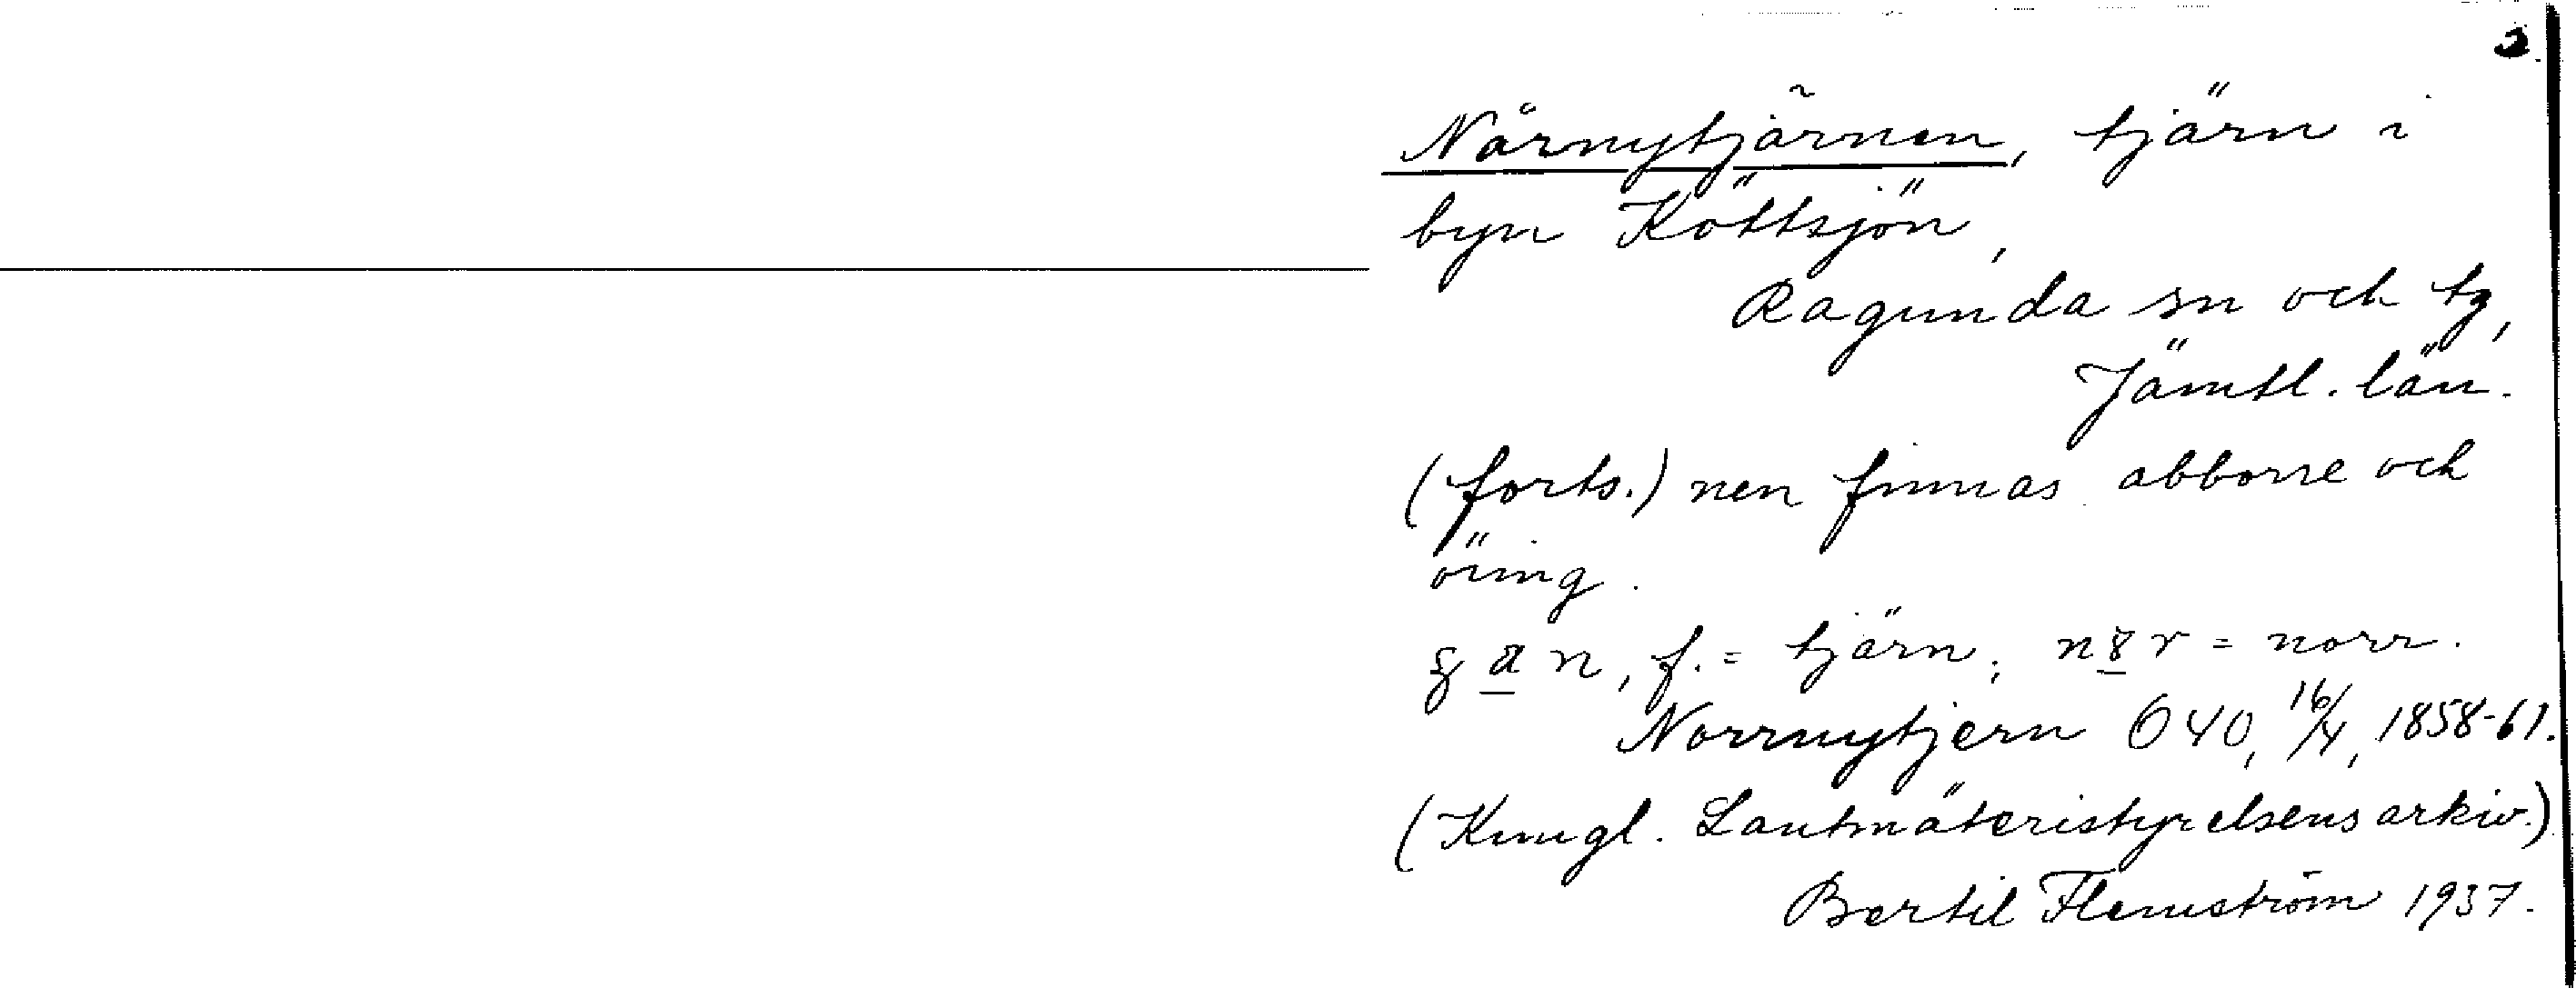 2.
Nårnytjärnen, tjärn i
byn Köttsjön,
Ragunda sn och tg,
Jämtl. län.
(forts.) nen finnas abborre och
öring.
n, f. = tjärn; = norr.
Norrnytjern 040, 16/4, 1858-61.
(Kungl. Lantmäteristyrelsens arkiv.)
Bertil Flemström 1937.